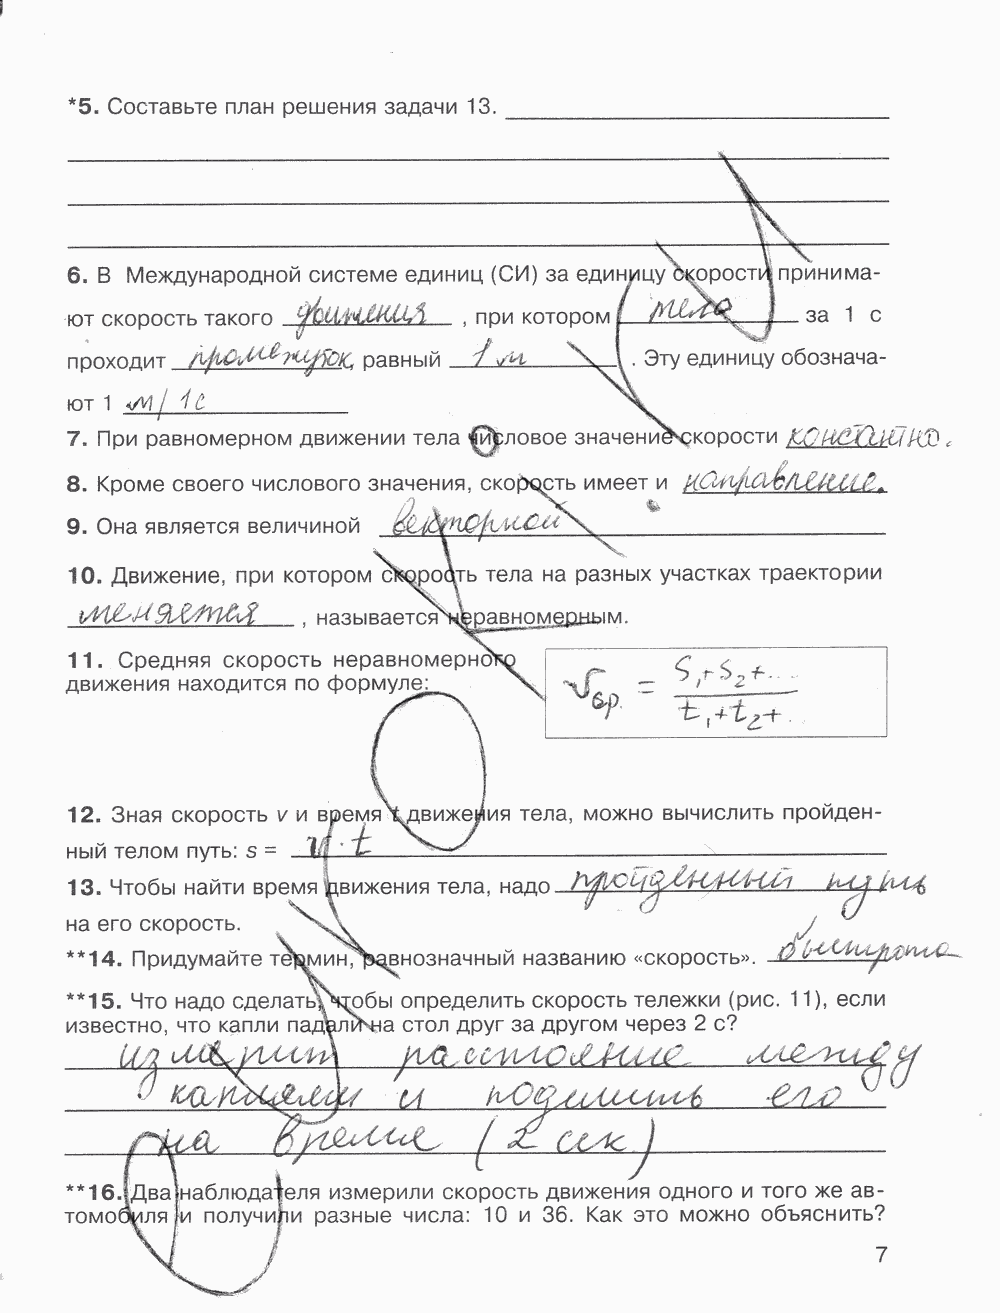 *5. Составьте план решения задачи 13.
6. В Международной системе единиц (СИ) за единицу скорости принима-
ют скорость такого движения, при котором тело за 1 с
проходит промежуток, равный 1 м. Эту единицу обознача-
ют 1 м/1с
7. При равномерном движении тела числовое значение скорости константно.
8. Кроме своего числового значения, скорость имеет и направление.
9. Она является величиной векторной
10. Движение, при котором скорость тела на разных участках траектории
меняется, называется неравномерным.
11. Средняя скорость неравномерного
движения находится по формуле:
Vср. = S₁+S₂+... / t₁+t₂+...
12. Зная скорость v и время t движения тела, можно вычислить пройден-
ный телом путь: s = v·t
13. Чтобы найти время движения тела, надо пройденный путь
на его скорость.
**14. Придумайте термин, равнозначный названию «скорость». быстрота
**15. Что надо сделать, чтобы определить скорость тележки (рис. 11), если
известно, что капли падали на стол друг за другом через 2 с?
измерит расстояние между
каплями и поделить его
на время (2 сек)
**16. Два наблюдателя измерили скорость движения одного и того же ав-
томобиля и получили разные числа: 10 и 36. Как это можно объяснить?
7